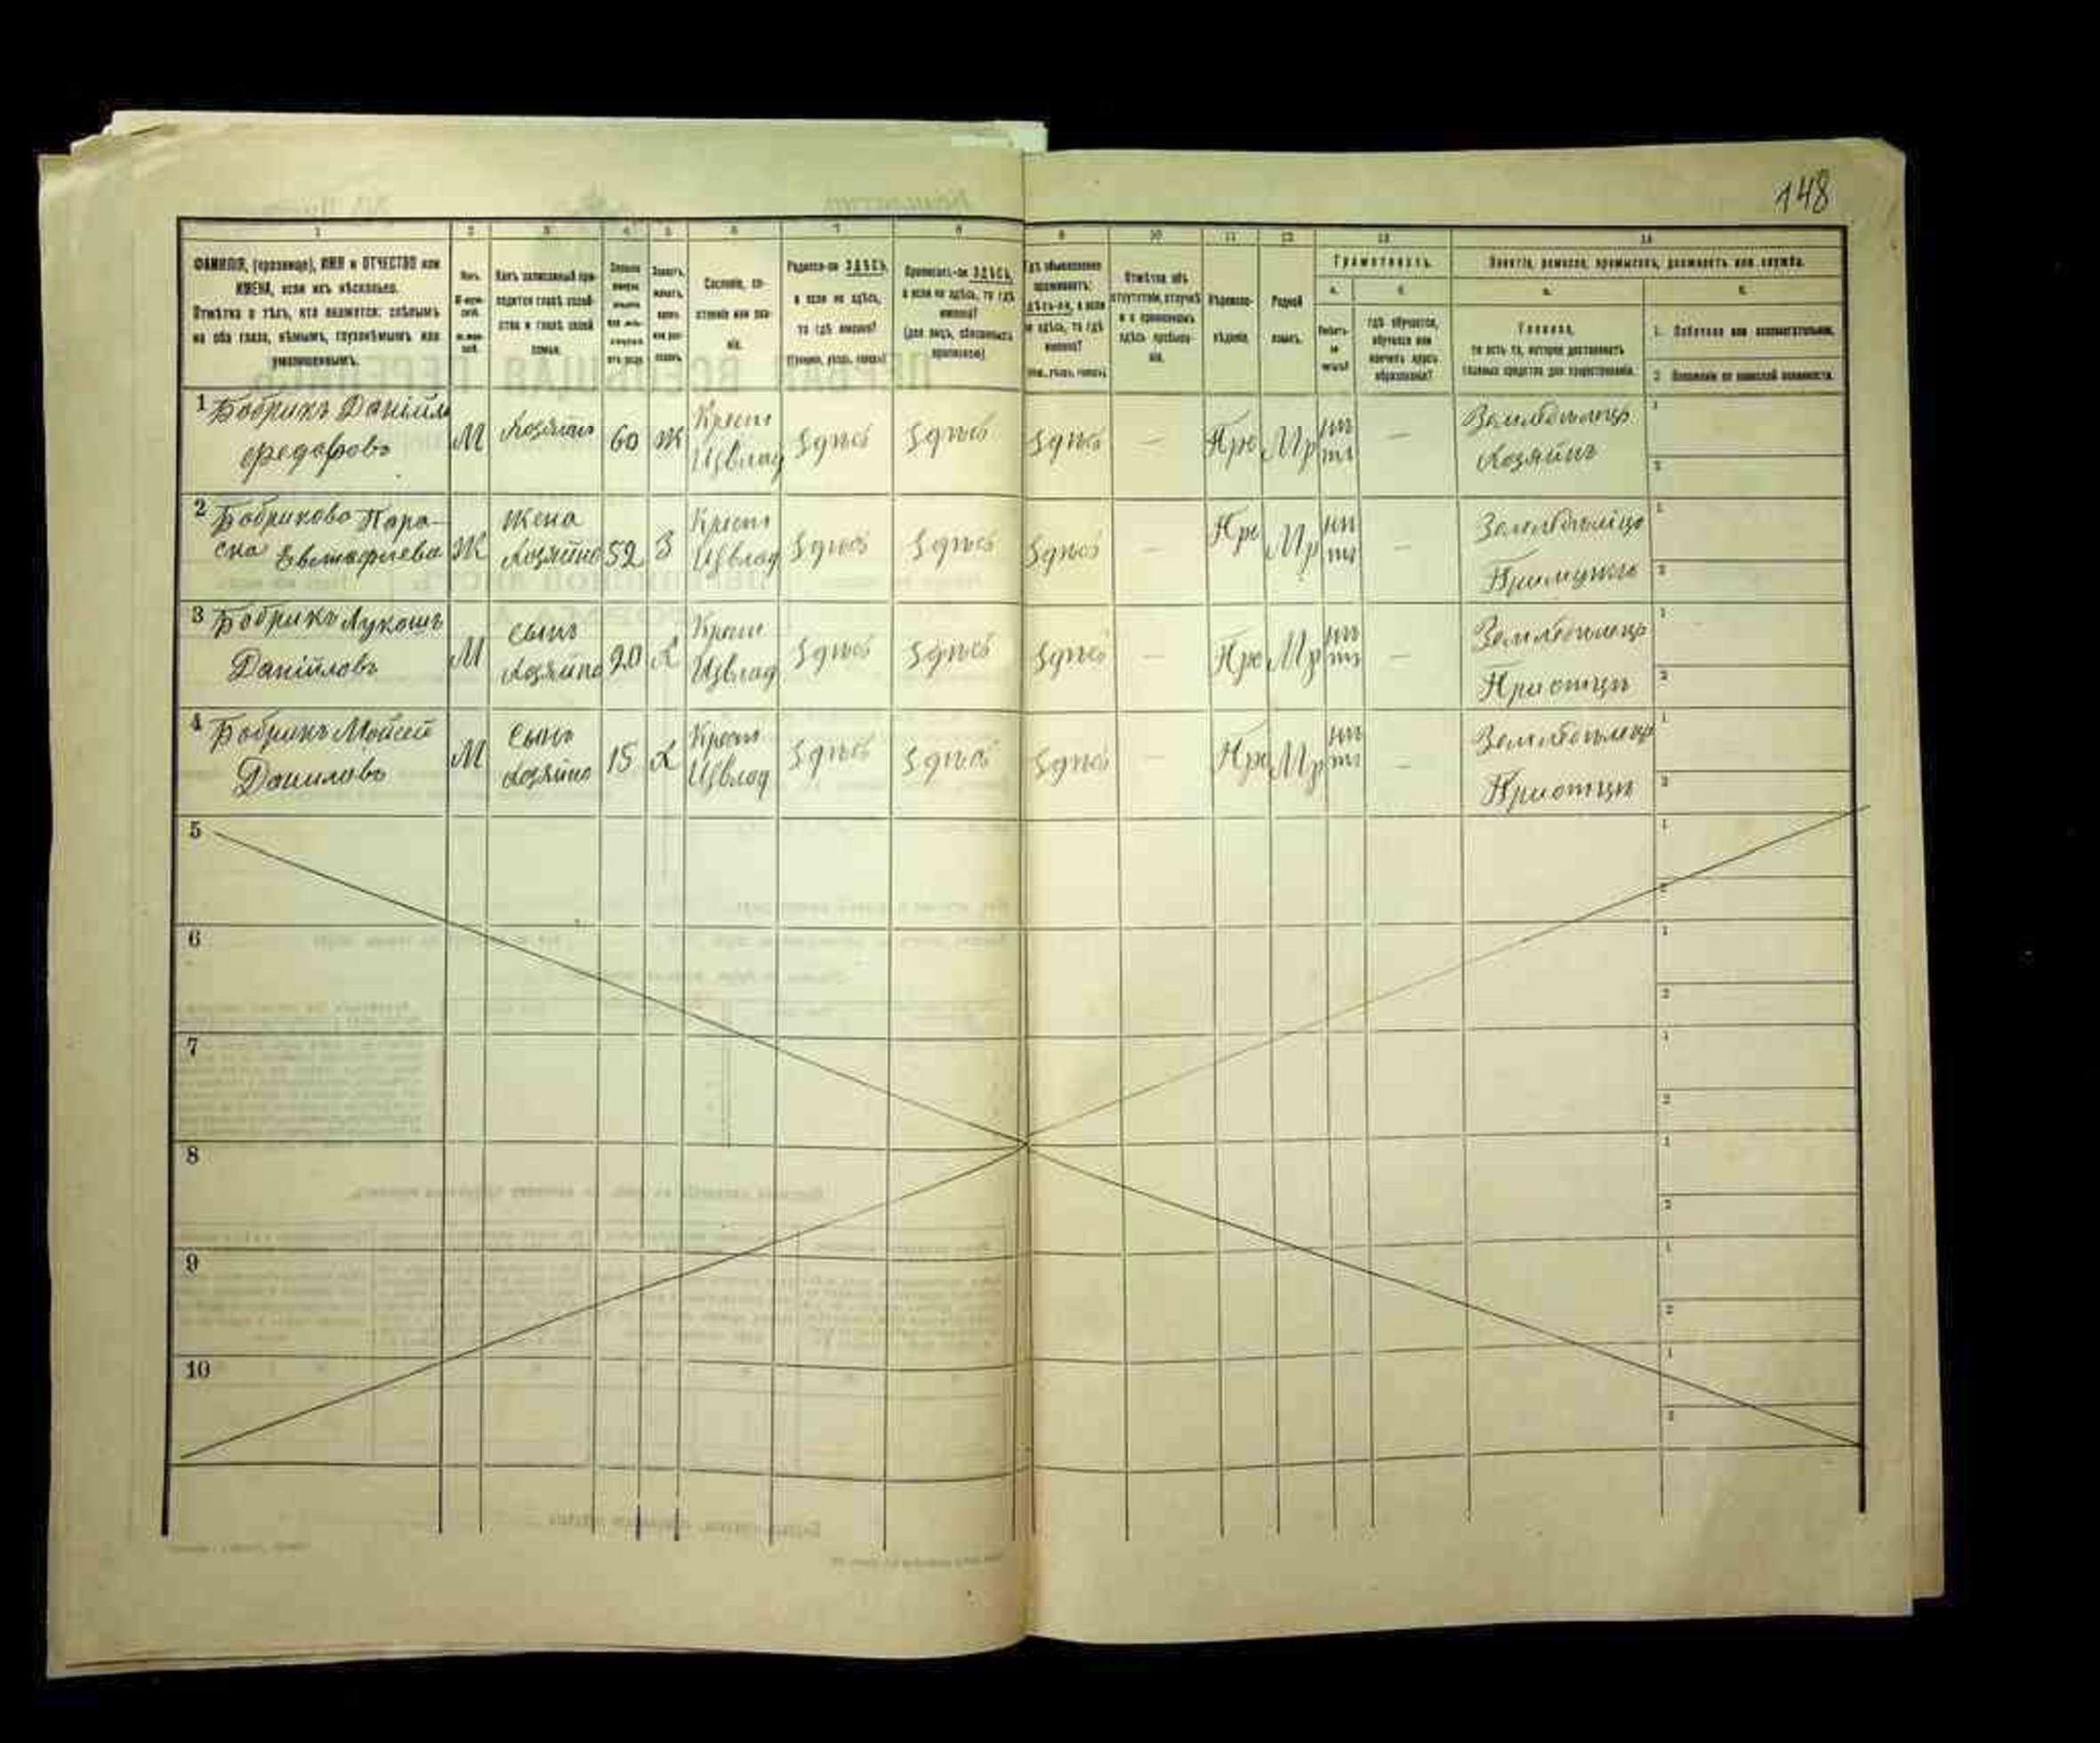 148
1 2 3 4 5 6 7 8 9 10 11 12 13 14
ФАМИЛІЯ, (прозвище), ИМЯ и ОТЧЕСТВО или
ИМЕНА, если ихъ нѣсколько.
Отмѣтка о тѣхъ, кто окажется: слѣпымъ
на оба глаза, нѣмымъ, глухонѣмымъ или
умалишеннымъ.
Полъ.
Какъ записанный при-
ходится главѣ хозяй-
ства и главѣ своей
семьи.
Сословіе, со-
стояніе или зва-
ніе.
Родился-ли ЗДѢСЬ,
а если не здѣсь,
то гдѣ именно?
(Губернія, уѣздъ, городъ)
Приписанъ-ли ЗДѢСЬ,
а если не здѣсь, то гдѣ
именно?
(для лицъ, обязанныхъ
припискою)
Гдѣ обыкновенно
проживаетъ:
здѣсь-ли, а если
не здѣсь, то гдѣ
именно?
Отмѣтка объ
отсутствіи, отлучкѣ
и о временномъ
здѣсь пребыва-
ніи.
Вѣроиспо-
вѣданіе.
Родной
языкъ.
Грамотность.
а. б.
Умѣетъ-
ли
читать?
гдѣ обучается,
обучался или
кончилъ курсъ
образованія?
Занятіе, ремесло, промыселъ, должность или служба.
а. б.
Главное,
то есть то, которое доставляетъ
главныя средства для существованія.
1. Побочное или вспомогательное.
2. Положеніе по воинской повинности.
1 Бобрикъ Даніилъ
Федоровъ
М Хозяинъ 60 Ж Крест
Извлад Здѣсь Здѣсь Здѣсь — Пра Мр нѣ
тъ — Земледѣлецъ
Хозяинъ
2 Бобрикова Пара-
ска Евстафіева
Ж Жена
Хозяина 52 З Крест
Извлад Здѣсь Здѣсь Здѣсь — Пра Мр нѣ
тъ — Земледѣлица
При мужѣ
3 Бобрикъ Лукашъ
Даніиловъ
М Сынъ
Хозяина 20 Х Крест
Извлад Здѣсь Здѣсь Здѣсь — Пра Мр нѣ
тъ — Земледѣлецъ
При отцѣ
4 Бобрикъ Мойсей
Даниловъ
М Сынъ
Хозяина 15 Х Крест
Извлад Здѣсь Здѣсь Здѣсь — Пра Мр нѣ
тъ — Земледѣлецъ
При отцѣ
5
6
7
8
9
10